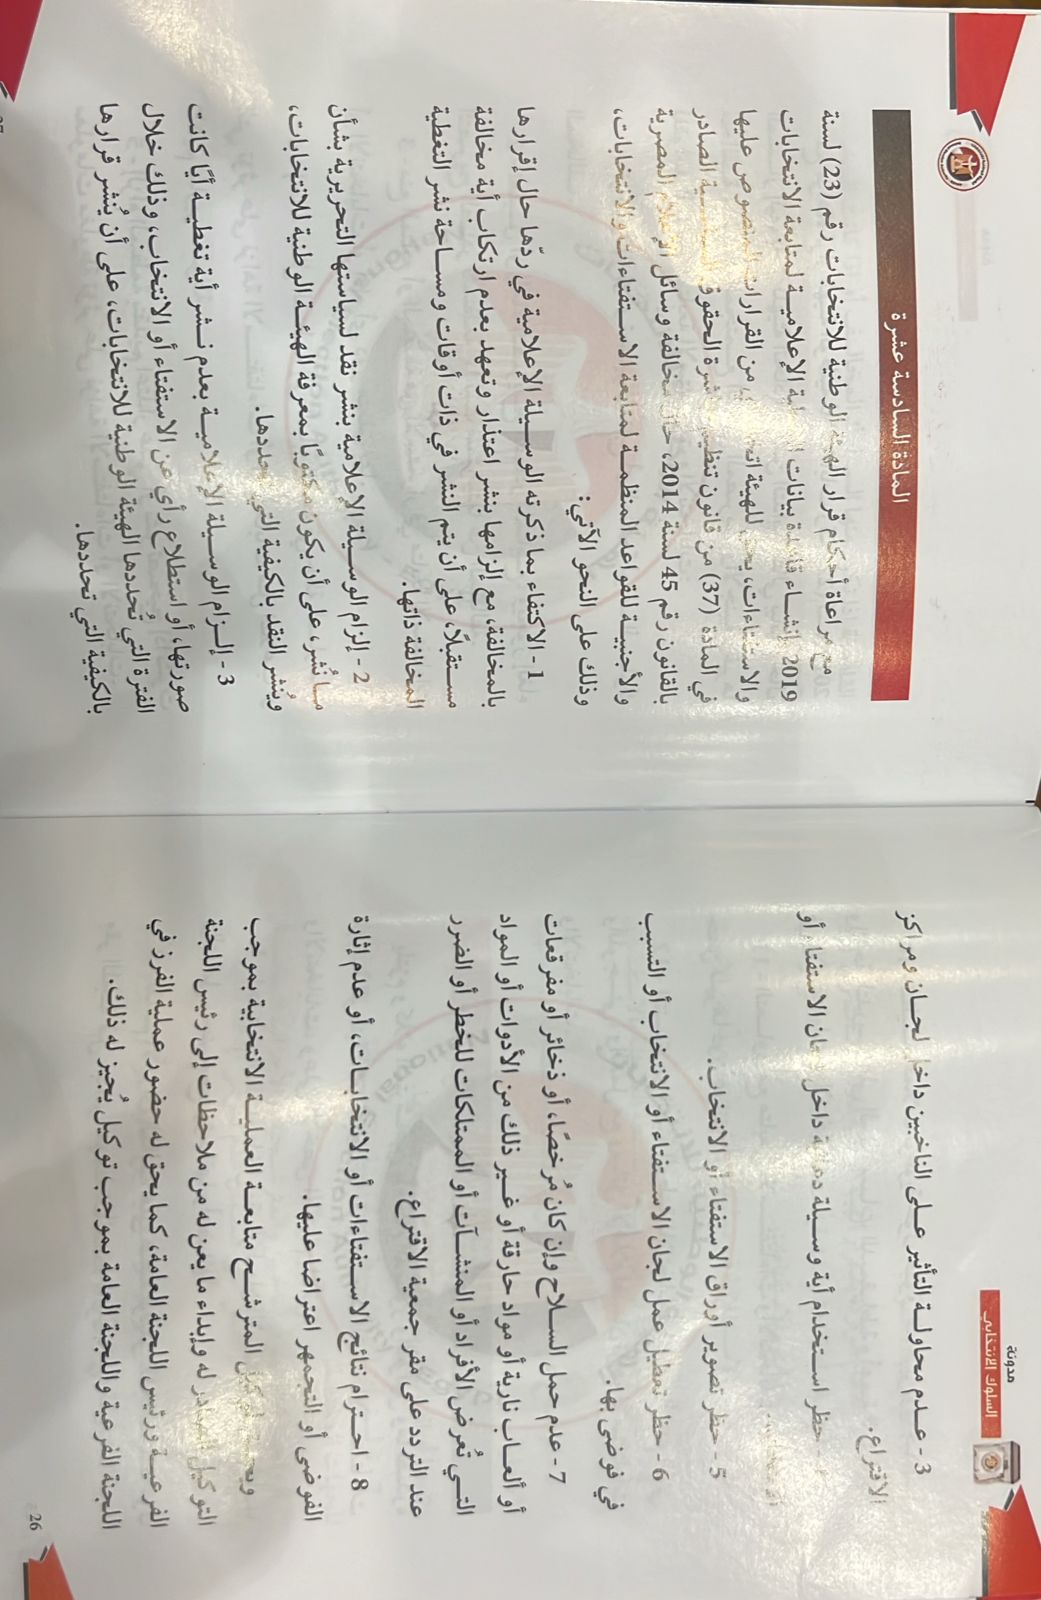 مدونة
السلوك الانتخابي
3 - عدم محاولة التأثير على الناخبين داخل لجان ومراكز
الاقتراع.
حظر استخدام أية وسيلة داخل لجان الاستفتاء أو
5 - حظر تصوير أوراق الاستفتاء أو الانتخاب.
6 - حظر تعطيل عمل لجان الاستفتاء أو الانتخاب أو التسبب
في فوضى بها.
7 - عدم حمل السلاح وإن كان مُرخصًا، أو ذخائر أو مفرقعات
أو ألعاب نارية أو مواد حارقة أو غير ذلك من الأدوات أو المواد
التي تُعرض الأفراد أو المنشآت أو الممتلكات للخطر أو الضرر
عند التردد على مقر جمعية الاقتراع.
8 - احترام نتائج الاستفتاءات أو الانتخابات، أو عدم إثارة
الفوضى أو التجمهر اعتراضا عليها.
المترشح متابعة العملية الانتخابية بموجب
التوكيل الصادر له وإبداء ما يعن له من ملاحظات إلى رئيس اللجنة
الفرعية ورئيس اللجنة العامة، كما يحق له حضور عملية الفرز في
اللجنة الفرعية واللجنة العامة بموجب توكيل يُجيز له ذلك.
26
المادة السادسة عشرة
مع مراعاة أحكام قرار الهيئة الوطنية للانتخابات رقم (23) لسنة
2019 إنشاء قاعدة بيانات الإعلامية لمتابعة الانتخابات
والاستفتاءات، يحق للهيئة من القرارات المنصوص عليها
في المادة (37) من قانون تنظيم مباشرة الحقوق السياسية الصادر
بالقانون رقم 45 لسنة 2014، حال مخالفة وسائل الإعلام المصرية
والأجنبية للقواعد المنظمة لمتابعة الاستفتاءات والانتخابات،
وذلك على النحو الآتي:
1 - الاكتفاء بما ذكرته الوسيلة الإعلامية في ردّها حال إقرارها
بالمخالفة، مع إلزامها بنشر اعتذار وتعهد بعدم ارتكاب أية مخالفة
مستقبلًا، على أن يتم النشر في ذات أوقات ومساحة نشر التغطية
المخالفة ذاتها.
2 - إلزام الوسيلة الإعلامية بنشر نقد لسياستها التحريرية بشأن
ما نُشر، على أن يكون مكتوبًا بمعرفة الهيئة الوطنية للانتخابات،
ويُنشر النقد بالكيفية التي تحددها.
3 - إلزام الوسيلة الإعلامية بعدم نشر أية تغطية أيًا كانت
صورتها، أو استطلاع رأي عن الاستفتاء أو الانتخاب، وذلك خلال
الفترة التي تُحددها الهيئة الوطنية للانتخابات، على أن يُنشر قرارها
بالكيفية التي تحددها.